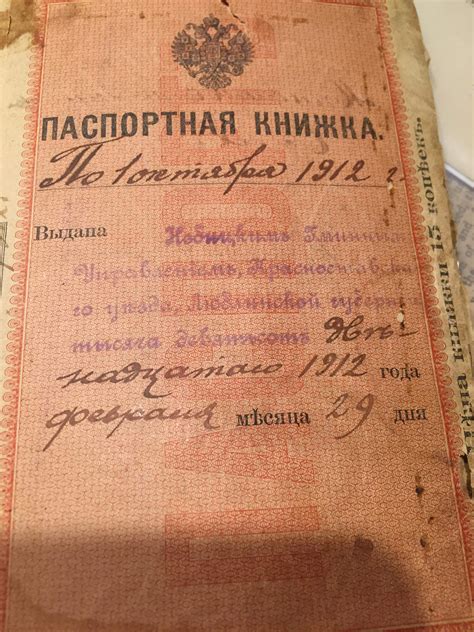 ПАСПОРТНАЯ КНИЖКА.
По 1 октября 1912 г.
Выдана
Гминнымъ
Управленіемъ, Красноставска-
го уѣзда, Люблинской губерніи
тысяча девятисотъ двѣ-
надцатаго 1912 года
февраля мѣсяца 29 дня
книжки 15 копѣекъ.